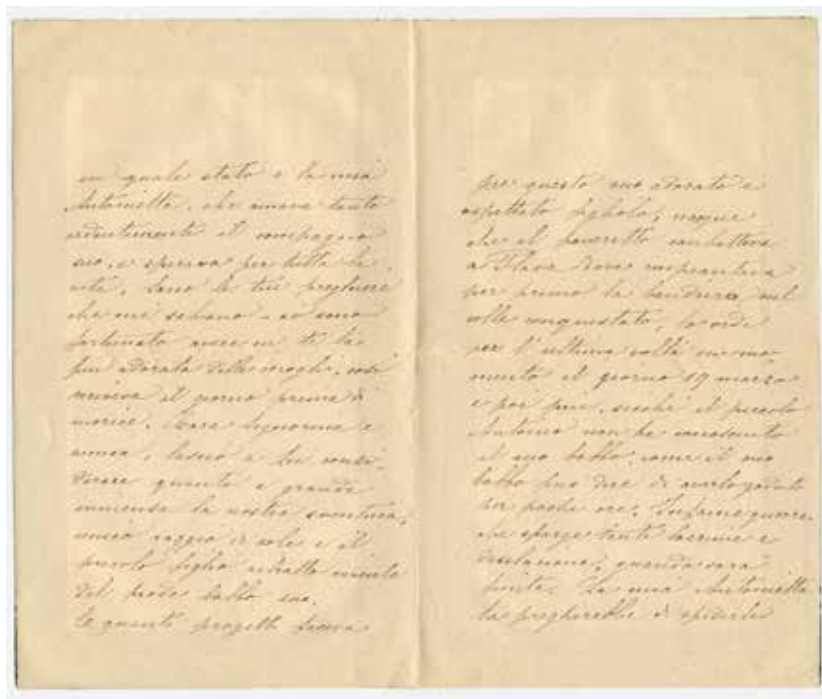 in quale stato è la mia
Antonietta, che amava tanto
ardentemente il compagno
suo, e sperava per tutta la
vita. Sono le tue preghiere
che mi salvano - io sono
fortunato avere in te la
più adorata delle mogli, così
scriveva il giorno prima di
morire. Cara Signorina e
amica, lascio a Lei consi-
derare quanto è grande
immensa la nostra sventura,
unico raggio di sole è il
piccolo figlio ritratto vivente
del prode babbo suo.
E quanti progetti faceva
per questo suo adorato e
aspettato figliolo, nacque
che il poveretto combatteva
a Plava dove impiantava
per primo la bandiera nel
colle conquistato, lo vide
per l'ultima volta un mo-
mento il giorno 19 marzo
e poi più, sicchè il piccolo
Antonio non ha conosciuto
il suo babbo, come il suo
babbo può dire di averlo goduto
per poche ore. Infame guerra
che sparge tante lacrime e
desolazione, quando sarà
finita. La mia Antonietta
la pregherebbe di spedirle